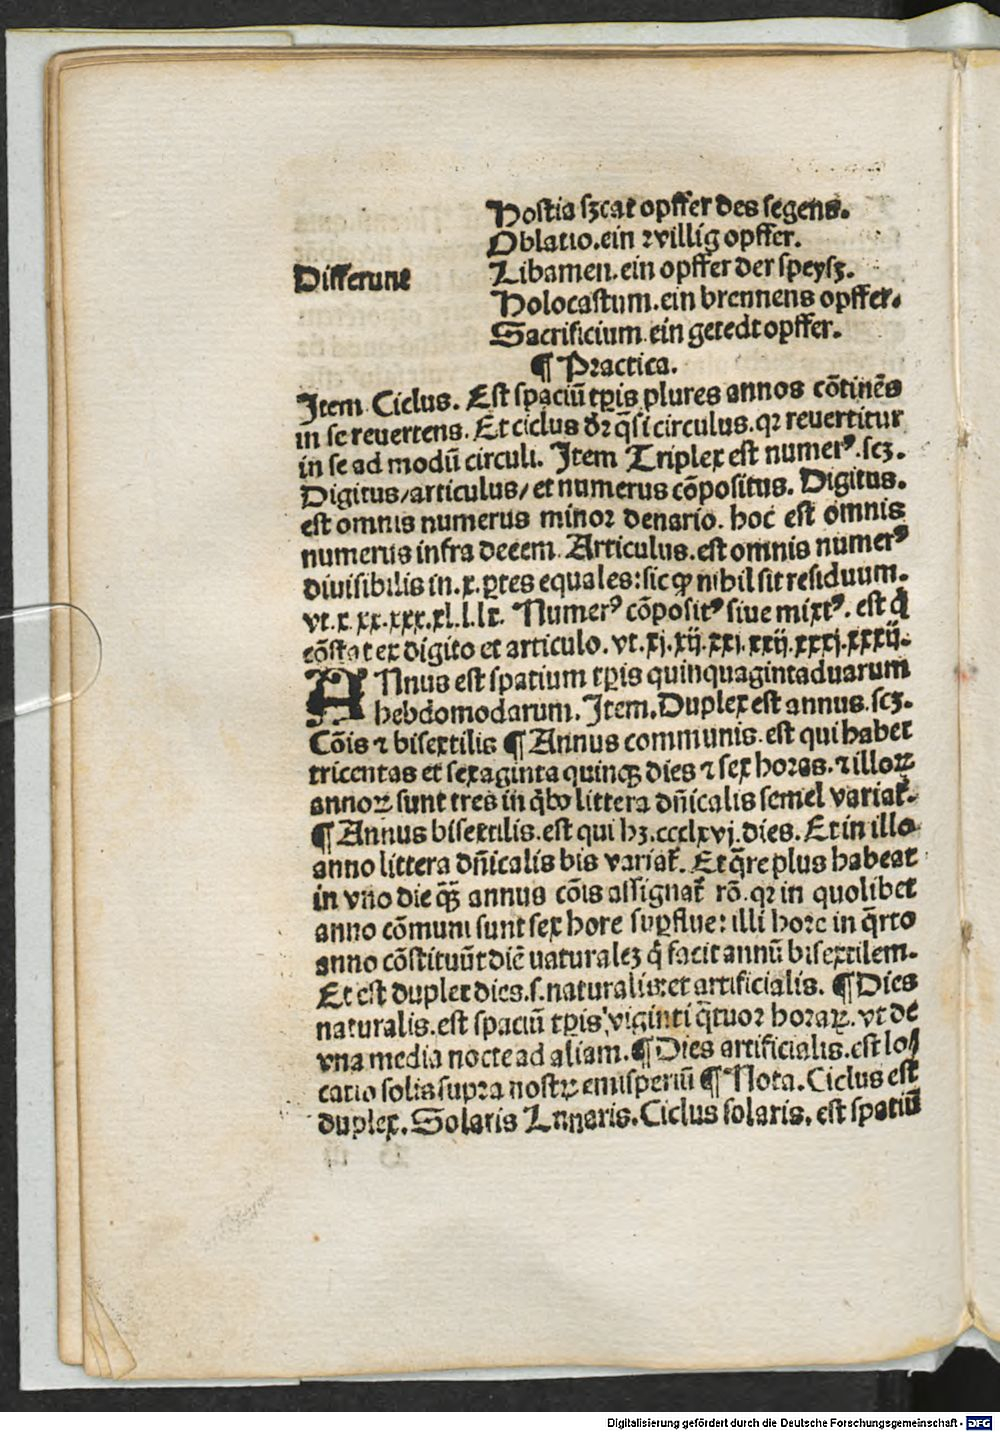 Hostia sꝫcat opffer des segens.
Oblatio. ein willig opffer.
Differunt
Libamen. ein opffer der speysz.
Holocastum. ein brennens opffer.
Sacrificium. ein getedt opffer.
¶ Practica.
Item Ciclus. Est spaciū tꝑis plures annos cōtinēs
in se reuertens. Et ciclus dꝛ q̄si circulus. qꝛ reuertitur
in se ad modū circuli. Item Triplex est numerꝰ. scꝫ.
Digitus/ articulus/ et numerus cōpositus. Digitus.
est omnis numerus minoꝛ denario. hoc est omnis
numerus infra decem. Articulus. est omnis numerꝰ
diuisibilis in. x. ꝑtes equales: sic ꝙ nihil sit residuum.
vt. x. xx. xxx. xl. l. lx. Numerꝰ cōpositꝰ siue mixtꝰ. est q̇
cōstat ex digito et articulo. vt. xj. xij. xxj. xxij. xxxj. xxxij.
ANnus est spatium tꝑis quinquagintaduarum
hebdomodarum. Item. Duplex est annus. scꝫ.
Cōis ⁊ bisextilis ¶ Annus communis. est qui habet
tricentas et sexaginta quinqꝫ dies ⁊ sex hoꝛas. ⁊ illoꝝ
annoꝝ sunt tres in q̇bꝰ littera dn̄icalis semel variat᷑.
¶ Annus bisextilis. est qui hꝫ. ccclxvj. dies. Et in illo
anno littera dn̄icalis bis variat᷑. Et q̄re plus habeat
in vno die qꝫ̄ annus cōis assignat᷑ rō. qꝛ in quolibet
anno cōmuni sunt sex hore suꝑflue: illi hoꝛe in q̄rto
anno cōstituūt diē uaturaleꝫ q̇ facit annū bisextilem.
Et est duplex dies. s. naturalis: et artificialis. ¶ Dies
naturalis. est spaciū tꝑis viginti q̄tuoꝛ hoꝛaꝝ. vt de
vna media nocte ad aliam. ¶ Dies artificialis. est lo/
catio solis supꝛa nostꝝ emisperiū ¶ Nota. Ciclus est
duplex. Solaris Lunaris. Ciclus solaris. est spatiū
Digitalisierung gefördert durch die Deutsche Forschungsgemeinschaft - DFG